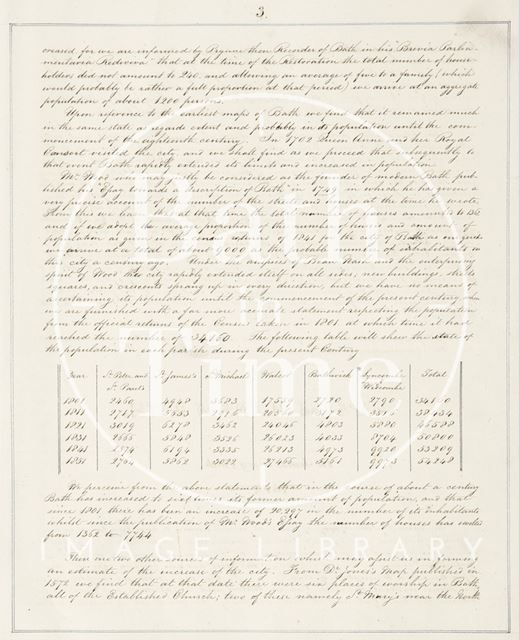 3.
creased for we are informed by Prynne then Recorder of Bath in his "Brevia Parlia-
mentaria Rediviva" that at the time of the Restoration the total number of house-
holders did not amount to 240, and allowing an average of five to a family (which
would probably be rather a full proportion at that period) we arrive at an aggregate
population of about 1200 persons.
Upon reference to the earliest maps of Bath we find that it remained much
in the same state as regards extent and probably in its population until the com-
mencement of the eighteenth century. In 1702 Queen Anne and her Royal
Consort visited the city and we shall find as we proceed that subsequently to
that event Bath rapidly extended its limits and increased in population.
Mr. Wood who may justly be considered as the founder of modern Bath pub-
lished his "Essay towards a description of Bath" in 1749 in which he has given a
very precise account of the number of the streets and houses at the time he wrote.
From this we learn that at that time the total number of houses amounted to 1362
and if we adopt the average proportion of the number of houses and amount of
population as given in the census returns of 1841 for the city of Bath as our guide
we arrive at a total of about 9000 as the probable number of inhabitants in
the city a century ago. Under the auspices of Beau Nash and the enterprising
spirit of Wood the city rapidly extended itself on all sides; new buildings, streets
squares, and crescents sprang up in every direction, but we have no means of
ascertaining its population until the commencement of the present century when
we are furnished with a far more precise statement respecting the population
from the official returns of the Census taken in 1801 at which time it had
reached the number of 34160. The following table will shew the state of
the population in each parish during the present Century
Year St Peter and St Paul's St James's St Michael's Walcot Bathwick Lyncombe Widcombe Total
1801 2460 4948 3583 17559 2720 2790 34160
1811 2717 38434
1821 3019 6278 3462 24046 4803 5880
1831 2666 5848 3526 26023 4033 8704 50800
1841 6194 3335 26213 4973 9920
1851 2704 5862 3022 27466 5161 9973 54248
We perceive from the above statements that in the course of about a century
Bath has increased to six times its former amount of population, and that
since 1801 there has been an increase of 20,207 in the number of its inhabitants
whilst since the publication of Mr. Wood's Essay the number of houses has varied
from 1362 to 7744
There are two other sources of information which may assist us in forming
an estimate of the increase of the city. From Dr. Jones's map published in
1572 we find that at that date there were six places of worship in Bath
all of the Established Church; two of these namely St Mary's near the North
Bath
in
Time
IMAGE LIBRARY